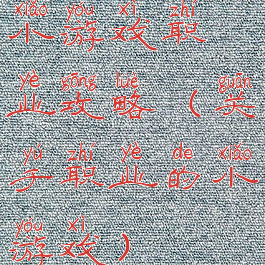 xiǎo yóu xì zhí
小游戏职
yè gōng lüè guān
业攻略（关
yú zhí yè de xiǎo
于职业的小
yóu xì
游戏）